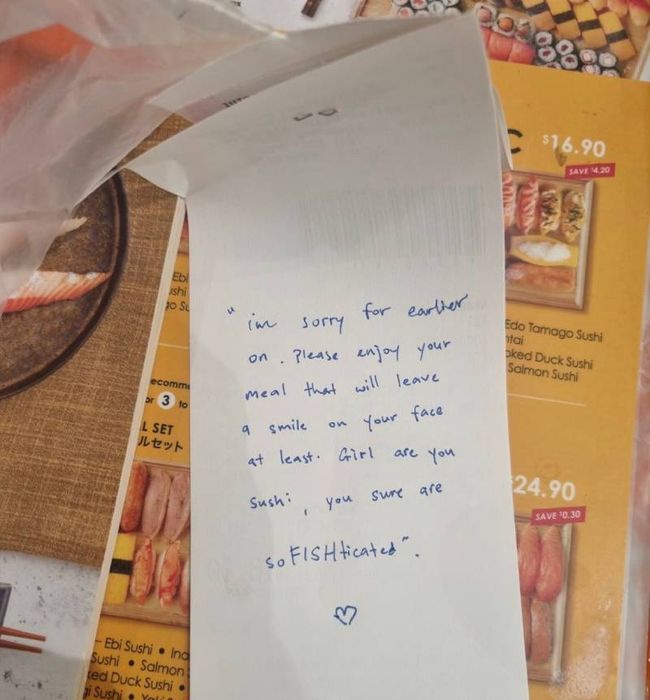 $16.90
SAVE $4.20
"im sorry for earlier
on. Please enjoy your
meal that will leave
a smile on your face
at least. Girl are you
sushi, you sure are
soFISHticated".
♡
Edo Tamago Sushi
Duck Sushi
Salmon Sushi
24.90
SAVE $0.30
Ebi
3 to
L SET
ルセット
Ebi Sushi •
Sushi • Salmon
Duck Sushi •
Sushi •